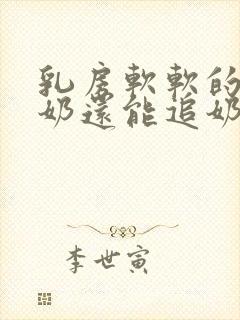 乳房軟軟的
奶還能追奶
李世寅